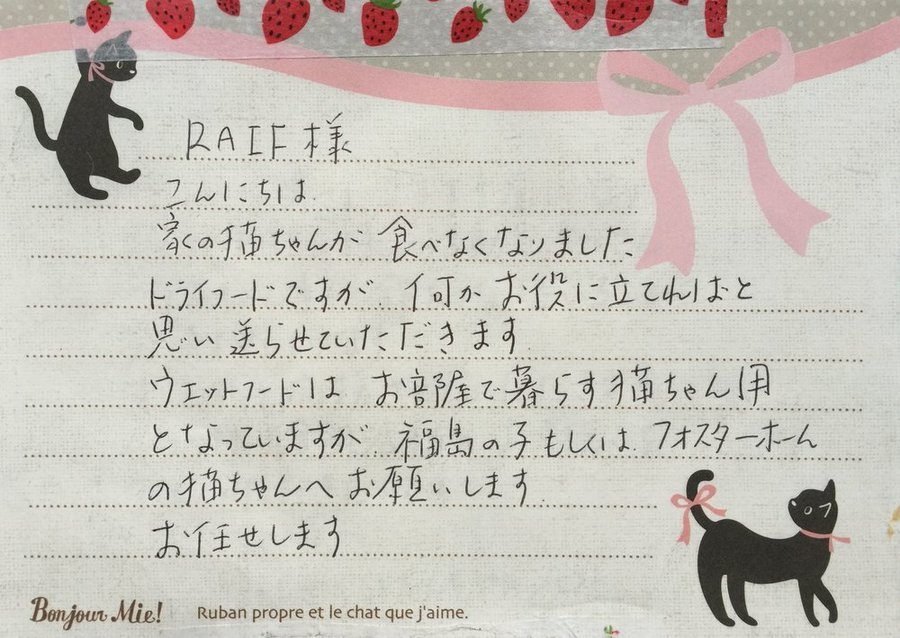 RAIF様
こんにちは.
家の猫ちゃんが 食べなくなりました
ドライフードですが. 何か お役に立てればと
思い 送らせていただきます.
ウエットフードは お部屋で暮らす猫ちゃん用
となっていますが. 福島の子もしくは. フォスターホーム
の猫ちゃんへ お願いします.
お任せします
Bonjour Mie! Ruban propre et le chat que j'aime.